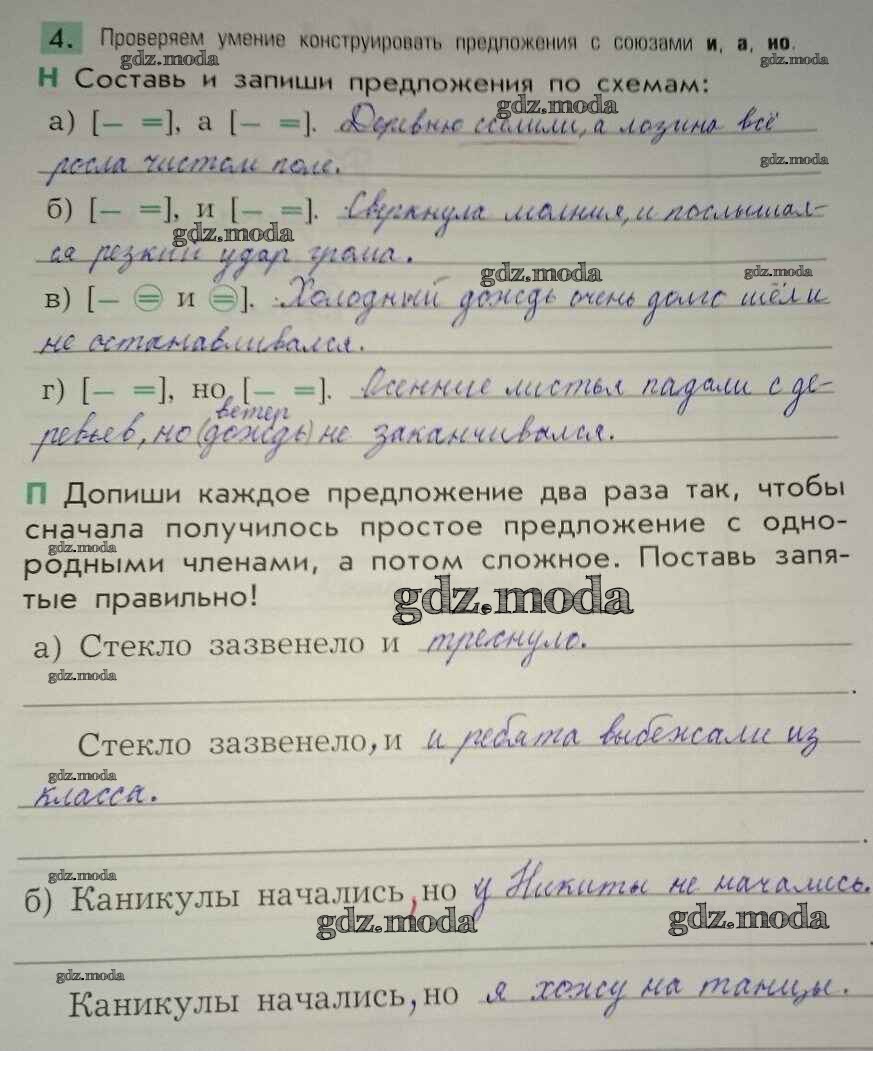 4. Проверяем умение конструировать предложения с союзами и, а, но.
gdz.moda gdz.moda
Н Составь и запиши предложения по схемам:
gdz.moda
а) [– =], а [– =]. Деревню селили, а лозина всё
росла чистом поле. gdz.moda
б) [– =], и [– =]. Сверкнула молния, и послышал-
gdz.moda
ся резкий удар грома.
gdz.moda gdz.moda
в) [– = и =]. Холодный дождь очень долго шёл и
не останавливался.
г) [– =], но [– =]. Осенние листья падали с де-
ветер
ревьев, но (дождь) не заканчивался.
П Допиши каждое предложение два раза так, чтобы
сначала получилось простое предложение с одно-
gdz.moda
родными членами, а потом сложное. Поставь запя-
тые правильно! gdz.moda
а) Стекло зазвенело и треснуло.
gdz.moda
.
Стекло зазвенело, и и ребята выбежали из
gdz.moda
класса.
.
gdz.moda
б) Каникулы начались, но у Никиты не начались.
gdz.moda gdz.moda
.
gdz.moda
Каникулы начались, но я хожу на танцы.